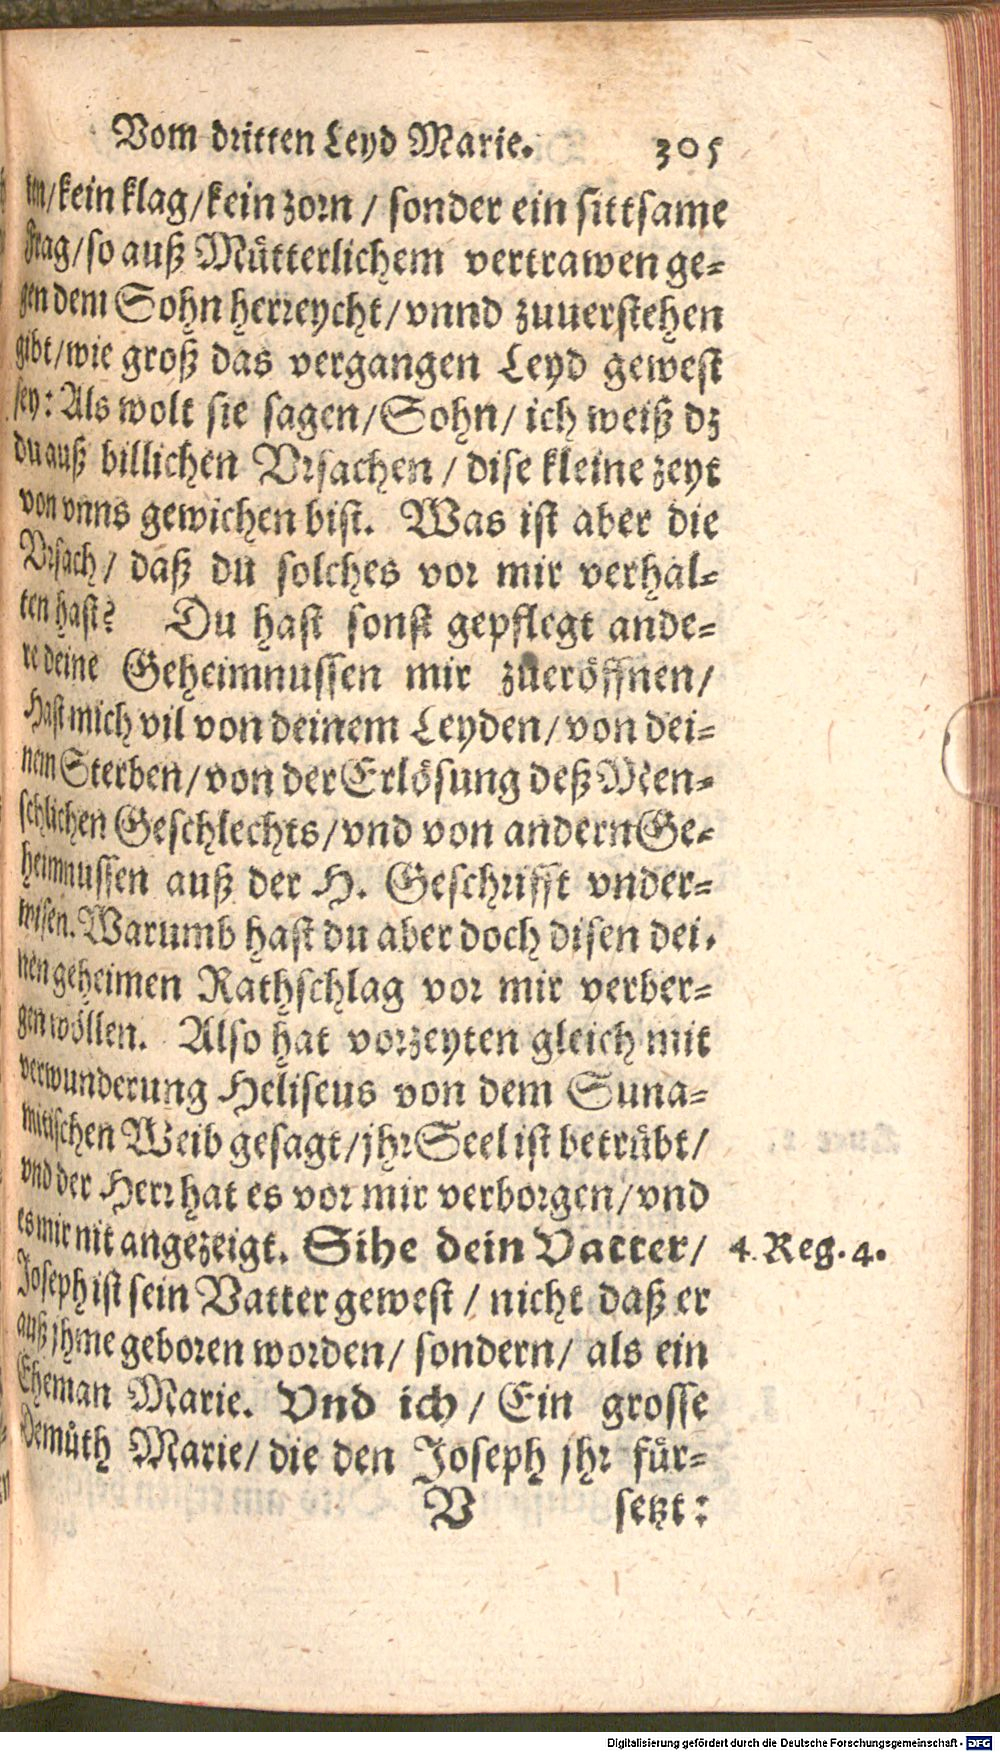 Vom dritten Leyd Marie. 305
ten/kein klag/kein zorn / sonder ein sittsame
Frag/so auß Mütterlichem vertrawen ge-
gen dem Sohn herreycht/vnnd zuuerstehen
gibt/wie groß das vergangen Leyd gewest
sey: Als wolt sie sagen/Sohn/ ich weiß dz
du auß billichen Vrsachen / dise kleine zeyt
von vnns gewichen bist. Was ist aber die
Vrsach/ daß du solches vor mir verhal-
ten hast? Du hast sonst gepflegt ande-
re deine Geheimnussen mir zueröffnen/
Hast mich vil von deinem Leyden/von dei-
nem Sterben/von der Erlösung deß Men-
schlichen Geschlechts/vnd von andern Ge-
heimnussen auß der H. Geschrifft vnder-
wisen. Warumb hast du aber doch disen dei-
nen geheimen Rathschlag vor mir verber-
gen wöllen. Also hat vorzeyten gleich mit
verwunderung Heliseus von dem Suna-
mitischen Weib gesagt/jhr Seel ist betrübt/
vnd der Herr hat es vor mir verborgen/vnd
es mir nit angezeigt. Sihe dein Vatter/ 4. Reg. 4.
Joseph ist sein Vatter gewest / nicht daß er
auß jhme geboren worden/ sondern/ als ein
Eheman Marie. Vnd ich/ Ein grosse
Demüth Marie/ die den Joseph jhr für-
V setzt:
Digitalisierung gefördert durch die Deutsche Forschungsgemeinschaft - DFG